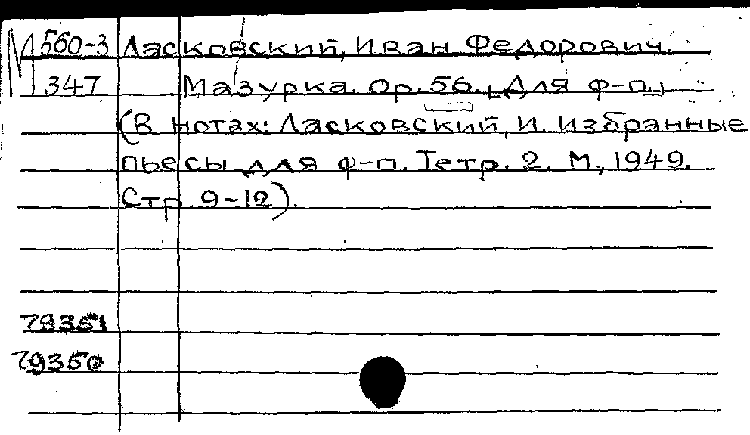 М 560-3 Ласковский, Иван Федорович.
347 Мазурка. Ор. 56. [Для ф-п.]
(В нотах: Ласковский, И. Избранные
пьесы для ф-п. Тетр. 2. М., 1949.
Стр. 9-12).
79351
79350